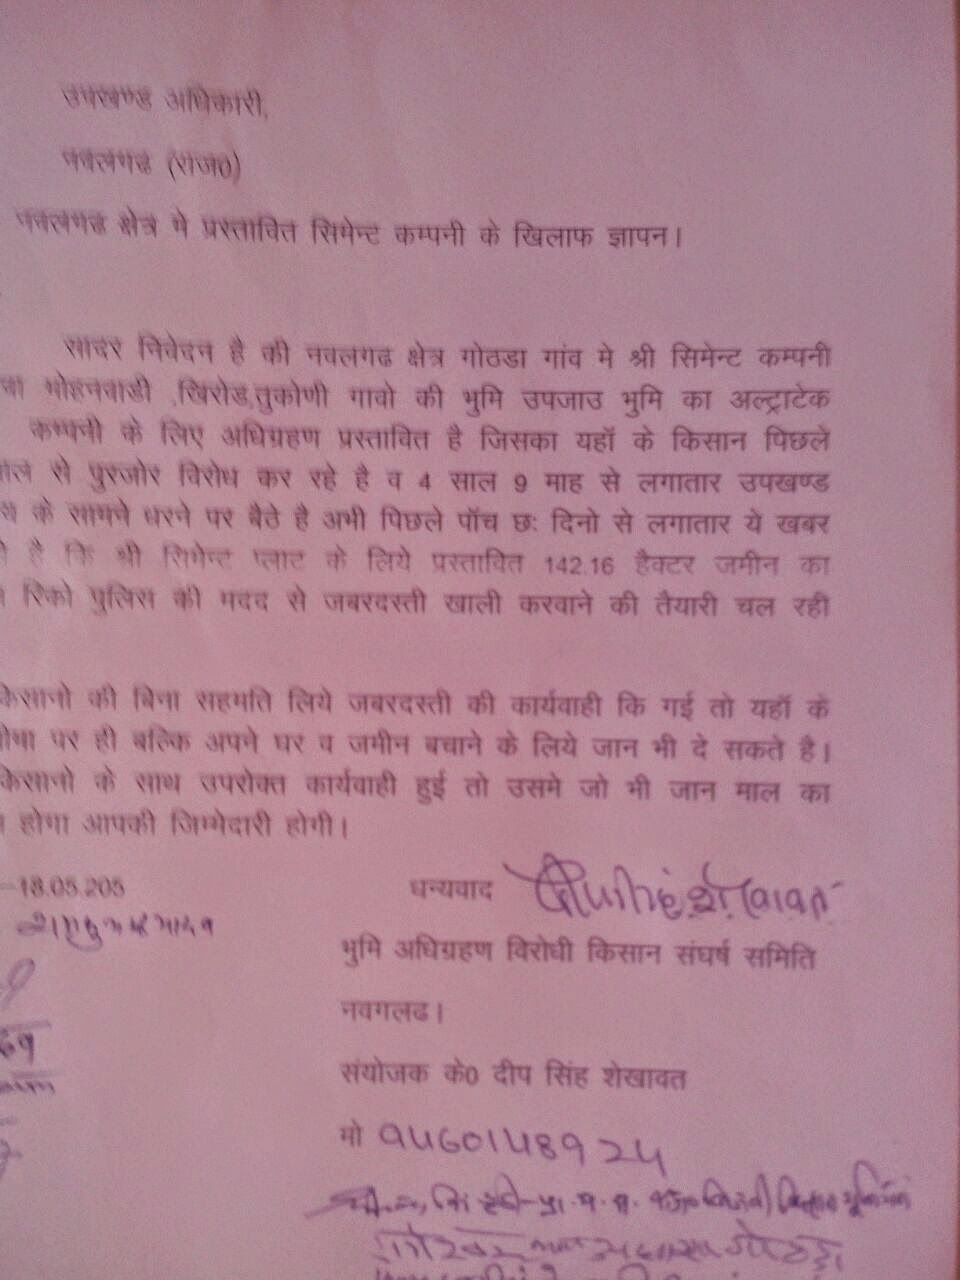 उपखण्ड अधिकारी,
नवलगढ (राज0)
नवलगढ क्षेत्र मे प्रस्तावित सिमेन्ट कम्पनी के खिलाफ ज्ञापन।
सादर निवेदन है की नवलगढ क्षेत्र गोठडा गांव मे श्री सिमेन्ट कम्पनी
मोहनवाडी ,खिरोड,तुकोणी गावो की भुमि उपजाउ भुमि का अल्ट्राटेक
कम्पनी के लिए अधिग्रहण प्रस्तावित है जिसका यहॉ के किसान पिछले
से पुरजोर विरोध कर रहे है व 4 साल 9 माह से लगातार उपखण्ड
के सामने धरने पर बैठे है अभी पिछले पॉच छः दिनो से लगातार ये खबर
है कि श्री सिमेन्ट प्लाट के लिये प्रस्तावित 142.16 हैक्टर जमीन का
रिको पुलिस की मदद से जबरदस्ती खाली करवाने की तैयारी चल रही
किसानो की बिना सहमति लिये जबरदस्ती की कार्यवाही कि गई तो यहॉ के
पर ही बल्कि अपने घर व जमीन बचाने के लिये जान भी दे सकते है।
किसानो के साथ उपरोक्त कार्यवाही हुई तो उसमे जो भी जान माल का
होगा आपकी जिम्मेदारी होगी।
18.05.205
धन्यवाद
भुमि अधिग्रहण विरोधी किसान संघर्ष समिति
नवगलढ।
संयोजक के0 दीप सिंह शेखावत
मो 9460148924